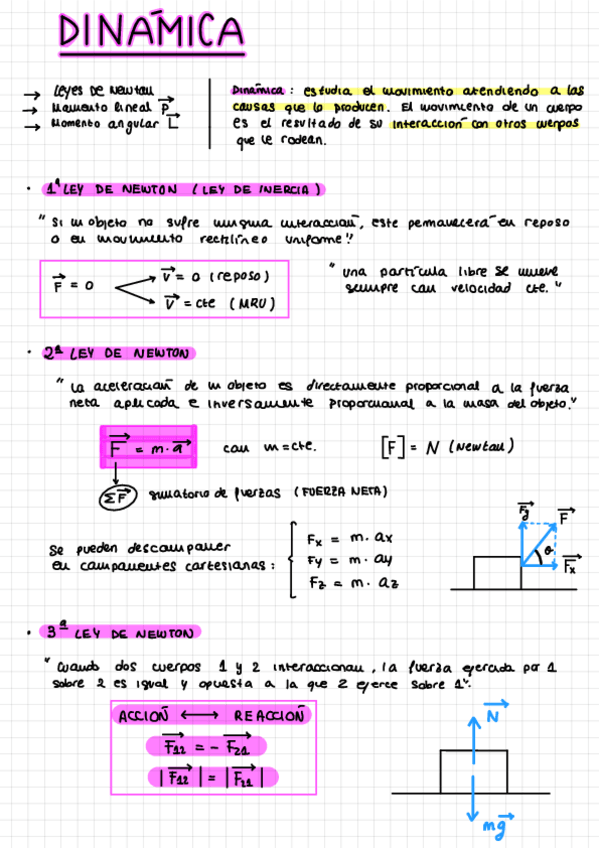 DINÁMICA
→ Leyes de Newton
→ Momento lineal P⃗
→ Momento angular L⃗
Dinámica: estudia el movimiento atendiendo a las
causas que lo producen. El movimiento de un cuerpo
es el resultado de su interacción con otros cuerpos
que le rodean.
· 1ª LEY DE NEWTON (LEY DE INERCIA)
"Si un objeto no sufre ninguna interacción, este permanecerá en reposo
o en movimiento rectilíneo uniforme"
F⃗ = 0
V⃗ = 0 (reposo)
V⃗ = cte (MRU)
"una partícula libre se mueve
siempre con velocidad cte."
· 2ª LEY DE NEWTON
"La aceleración de un objeto es directamente proporcional a la fuerza
neta aplicada e inversamente proporcional a la masa del objeto."
F⃗ = m·a⃗ con m=cte. [F] = N (Newton)
ΣF⃗ sumatorio de fuerzas (FUERZA NETA)
Se pueden descomponer
en componentes cartesianas:
Fx = m·ax
Fy = m·ay
Fz = m·az
F⃗y
F⃗
θ
F⃗x
· 3ª LEY DE NEWTON
"Cuando dos cuerpos 1 y 2 interaccionan, la fuerza ejercida por 1
sobre 2 es igual y opuesta a la que 2 ejerce sobre 1".
ACCIÓN ↔ REACCIÓN
F⃗12 = - F⃗21
|F⃗12| = |F⃗21|
N⃗
mg⃗